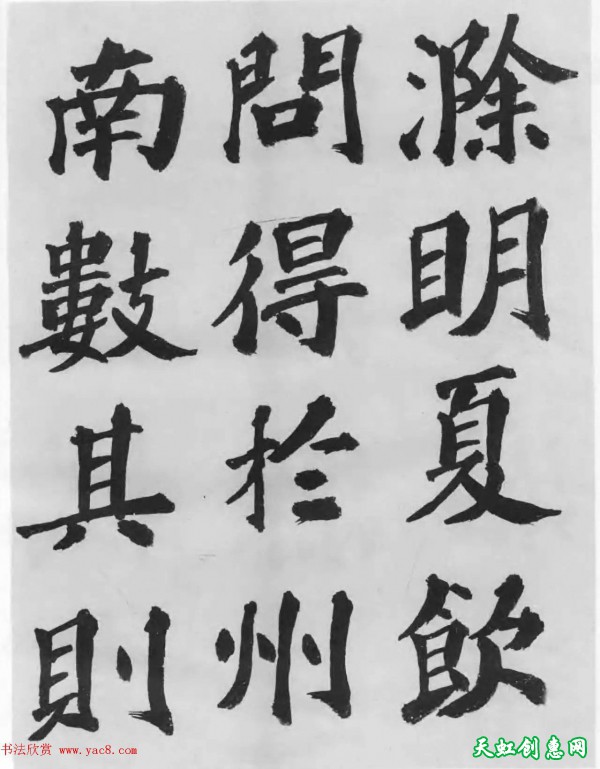 滁眀夏飲
問得於州
南數其則
书法欣赏 www.yac8.com
天虹创惠网